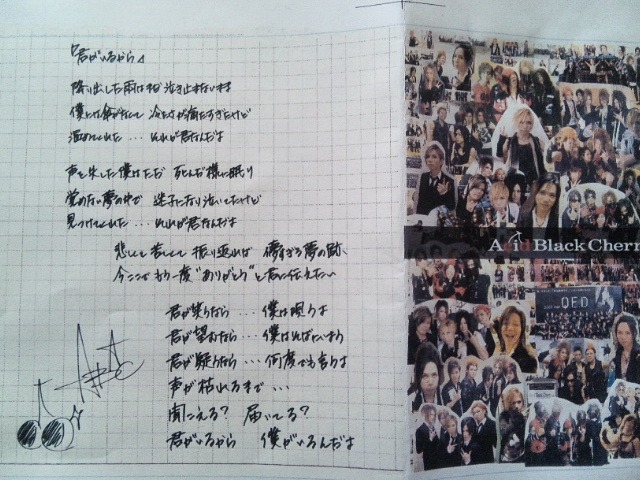 『君がいるから』
降り出した雨はまだ 泣き止まないまま
僕には傘がなくて 冷たさが痛すぎたけど
温めてくれた…それが君なんだよ
声を失した僕はただ 死んだ様に眠り
覚めない夢の中で 迷子になり泣いてたけど
見つけてくれた…それが君なんだよ
悲しくて苦しくて 振り返れば 儚すぎる夢の跡
今ここで もう一度“ありがとう”と君に伝えたい
君が笑うなら…僕は唄うよ
君が望むなら…僕は
君が疑うなら…何度でも言うよ
声が枯れるまで…
聞こえる? 届いてる?
君がいるから 僕がいるんだよ
Acid Black Cherry
QED